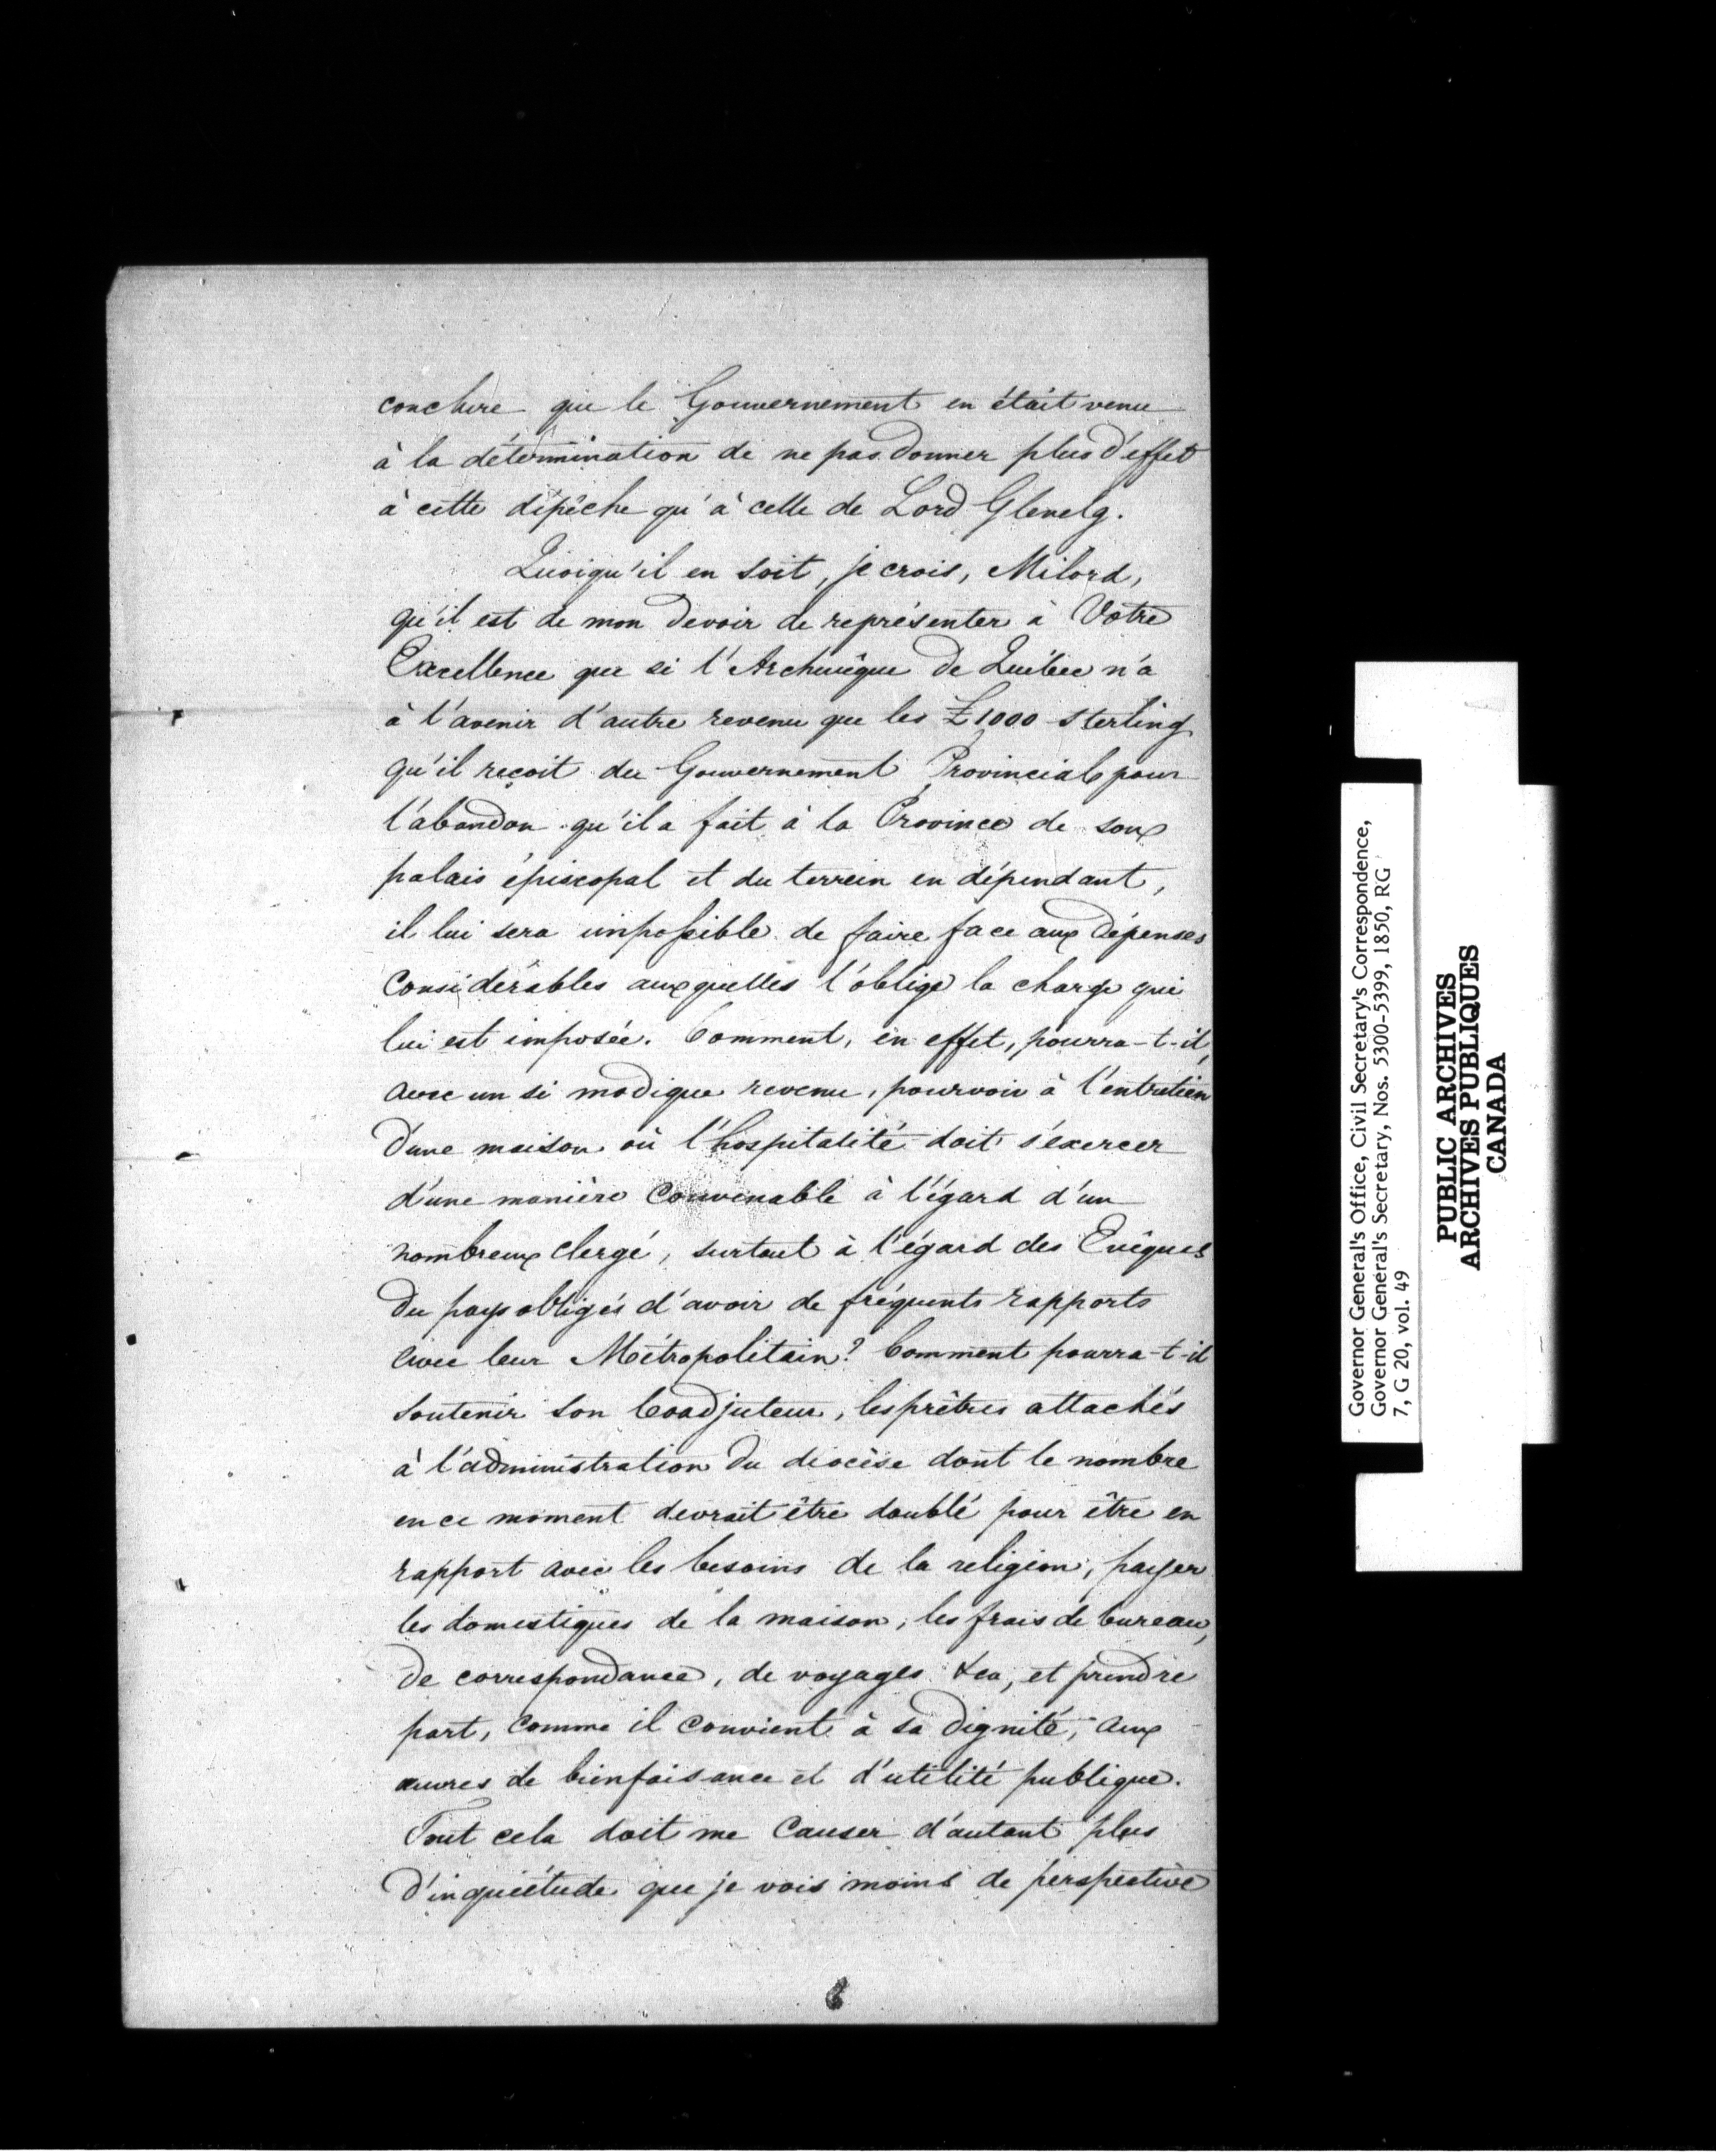 conclure que le Gouvernement en était venu
à la détermination de ne pas donner plus d'effet
à cette dépêche qu'à celle de Lord Glenelg.
Quoiqu'il en soit, je crois, Milord,
qu'il est de mon devoir de représenter à Votre
Excellence que si l'Archevêque de Québec n'a
à l'avenir d'autre revenu que les £1000 sterling
qu'il reçoit du Gouvernement Provincial pour
l'abandon qu'il a fait à la Province de son
palais épiscopal et du terrein en dépendant,
il lui sera impossible de faire face aux dépenses
considérables auxquelles l'oblige la charge qui
lui est imposée. Comment, en effet, pourra-t-il,
avec un si modique revenu, pourvoir à l'entretien
d'une maison où l'hospitalité doit s'exercer
d'une manière convenable à l'égard d'un
nombreux clergé, surtout à l'égard des Evêques
du pays obligés d'avoir de fréquents rapports
avec leur Métropolitain? Comment pourra-t-il
soutenir son Coadjuteur, les prêtres attachés
à l'administration du diocèse dont le nombre
en ce moment devrait être doublé pour être en
rapport avec les besoins de la religion, payer
les domestiques de la maison, les frais de bureau,
de correspondance, de voyages &ca, et prendre
part, comme il convient à sa dignité, aux
œuvres de bienfaisance et d'utilité publique.
Tout cela doit me causer d'autant plus
d'inquiétude que je vois moins de perspective
Governor General's Office, Civil Secretary's Correspondence,
Governor General's Secretary, Nos. 5300-5399, 1850, RG
7, G 20, vol. 49
PUBLIC ARCHIVES
ARCHIVES PUBLIQUES
CANADA